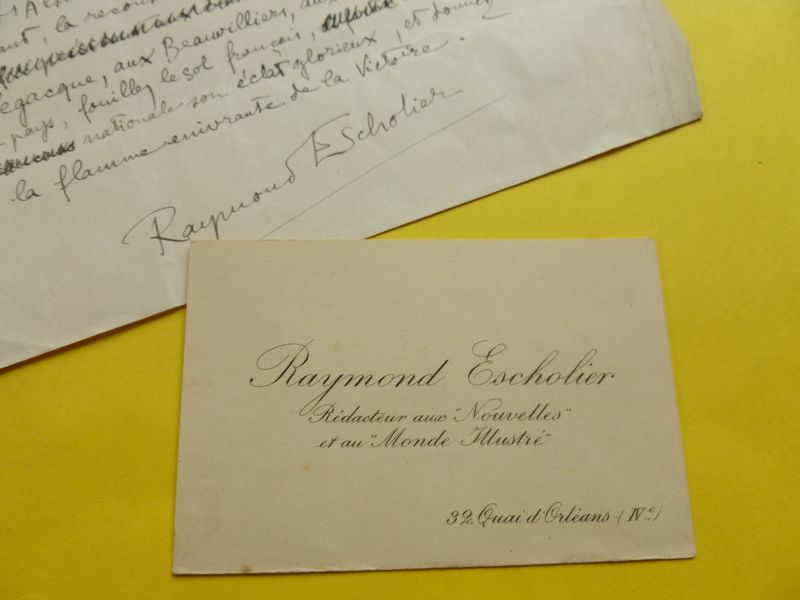 ant, la recon
égacque, aux Beauvilliers, aux
pays, fouillez le sol français,
nationale son éclat glorieux, et donnez
la flamme enivrante de la Victoire.
Raymond Escholier
Raymond Escholier
Rédacteur aux "Nouvelles"
et au "Monde Illustré"
32, Quai d'Orléans (IVe)